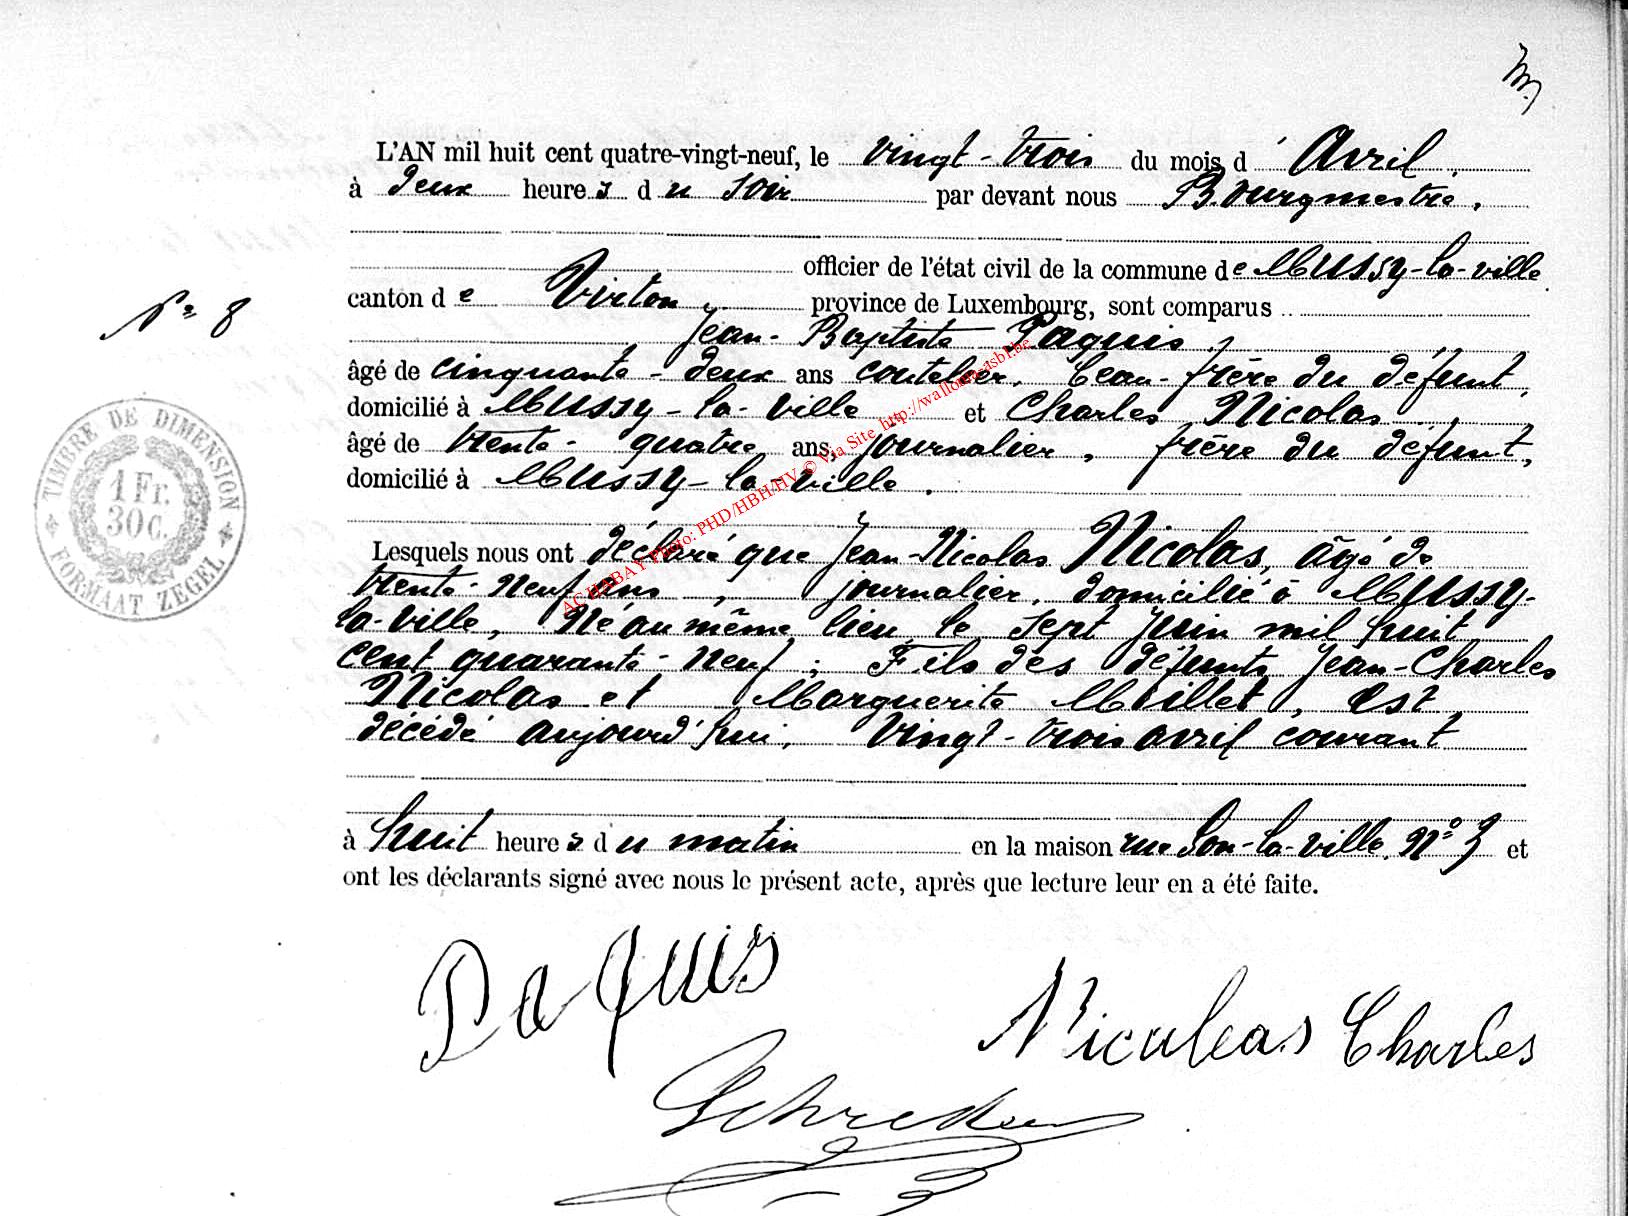 L'AN mil huit cent quatre-vingt-neuf, le vingt-trois du mois d' Avril
à deux heures du soir par devant nous Bourgmestre,
officier de l'état civil de la commune de Mussy-la-ville
canton de Virton, province de Luxembourg, sont comparus
Nº 8
Jean-Baptiste Paquis,
âgé de cinquante-deux ans coutelier, beau-frère du défunt,
domicilié à Mussy-la-ville et Charles Nicolas,
âgé de trente-quatre ans, journalier, frère du défunt,
domicilié à Mussy-la-ville.
TIMBRE DE DIMENSION
1 Fr.
30 C.
FORMAAT ZEGEL
Lesquels nous ont déclaré que Jean-Nicolas Nicolas, âgé de
trente-neuf ans, journalier, domicilié à Mussy-
la-ville, né au même lieu le sept juin mil huit
cent quarante-neuf, Fils des défunts Jean-Charles
Nicolas et Marguerite Millet, est
décédé aujourd'hui, vingt-trois avril courant
à huit heures du matin en la maison rue Son-la-ville, Nº 3 et
ont les déclarants signé avec nous le présent acte, après que lecture leur en a été faite.
ACHABAY Photo: PHD/HBH/HV © Via Site http://wallonia-asbl.be
Paquis
Nicoleas Charles